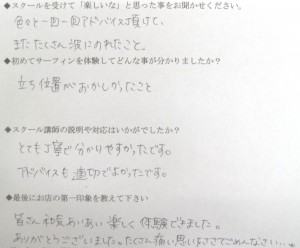 ◆スクールを受けて「楽しいな」と思った事をお聞かせください。
色々と一回一回アドバイス頂けて、
またたくさん波にのれたこと。
◆初めてサーフィンを体験してどんな事が分かりましたか?
立ち位置がおかしかったこと
◆スクール講師の説明や対応はいかがでしたか?
とても丁寧で分かりやすかったです。
アドバイスも適切でよかったです。
◆最後にお店の第一印象を教えて下さい
皆さん和気あいあい楽しく体験できました。
ありがとうございました。たくさん痛い思いをさせてごめんなさい...